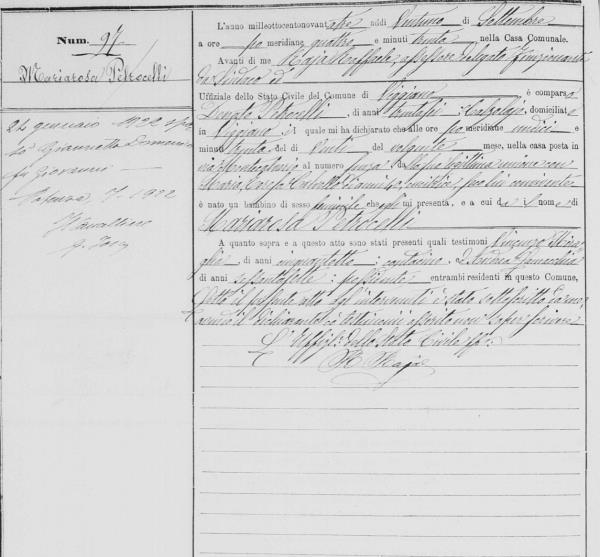 Num. 97
Mariarosa Petrocelli
24 gennaio 1922
Giannetta Domenico
fu Giovanni
Potenza 1922
L'anno milleottocentonovantatre, addì ventuno di Settembre
a ore pomeridiane quattro e minuti trenta, nella Casa Comunale.
Avanti di me Raffaele, assessore delegato funzionante
da Sindaco ed
Uffiziale dello Stato Civile del Comune di Viggiano, è comparso
Donato Petrocelli, di anni trentasei, Calzolajo, domiciliato
in Viggiano, il quale mi ha dichiarato che alle ore pomeridiane undici e
minuti trenta, del dì venti del volgente mese, nella casa posta in
via al numero senza, dalla sua legittima unione con
Maria seco lui convivente
è nato un bambino di sesso femminile che mi presenta, e a cui dà il nome di
Mariarosa Petrocelli.
A quanto sopra e a questo atto sono stati presenti quali testimoni Vincenzo
di anni cinquantotto, contadino, e Andrea
di anni sessantasette, possidente, entrambi residenti in questo Comune.
Letto il presente atto agl'intervenuti è stato sottoscritto da me,
il dichiarante ed i testimoni asserito non saper scrivere
L'Uffiz: dello Stato Civile ff: